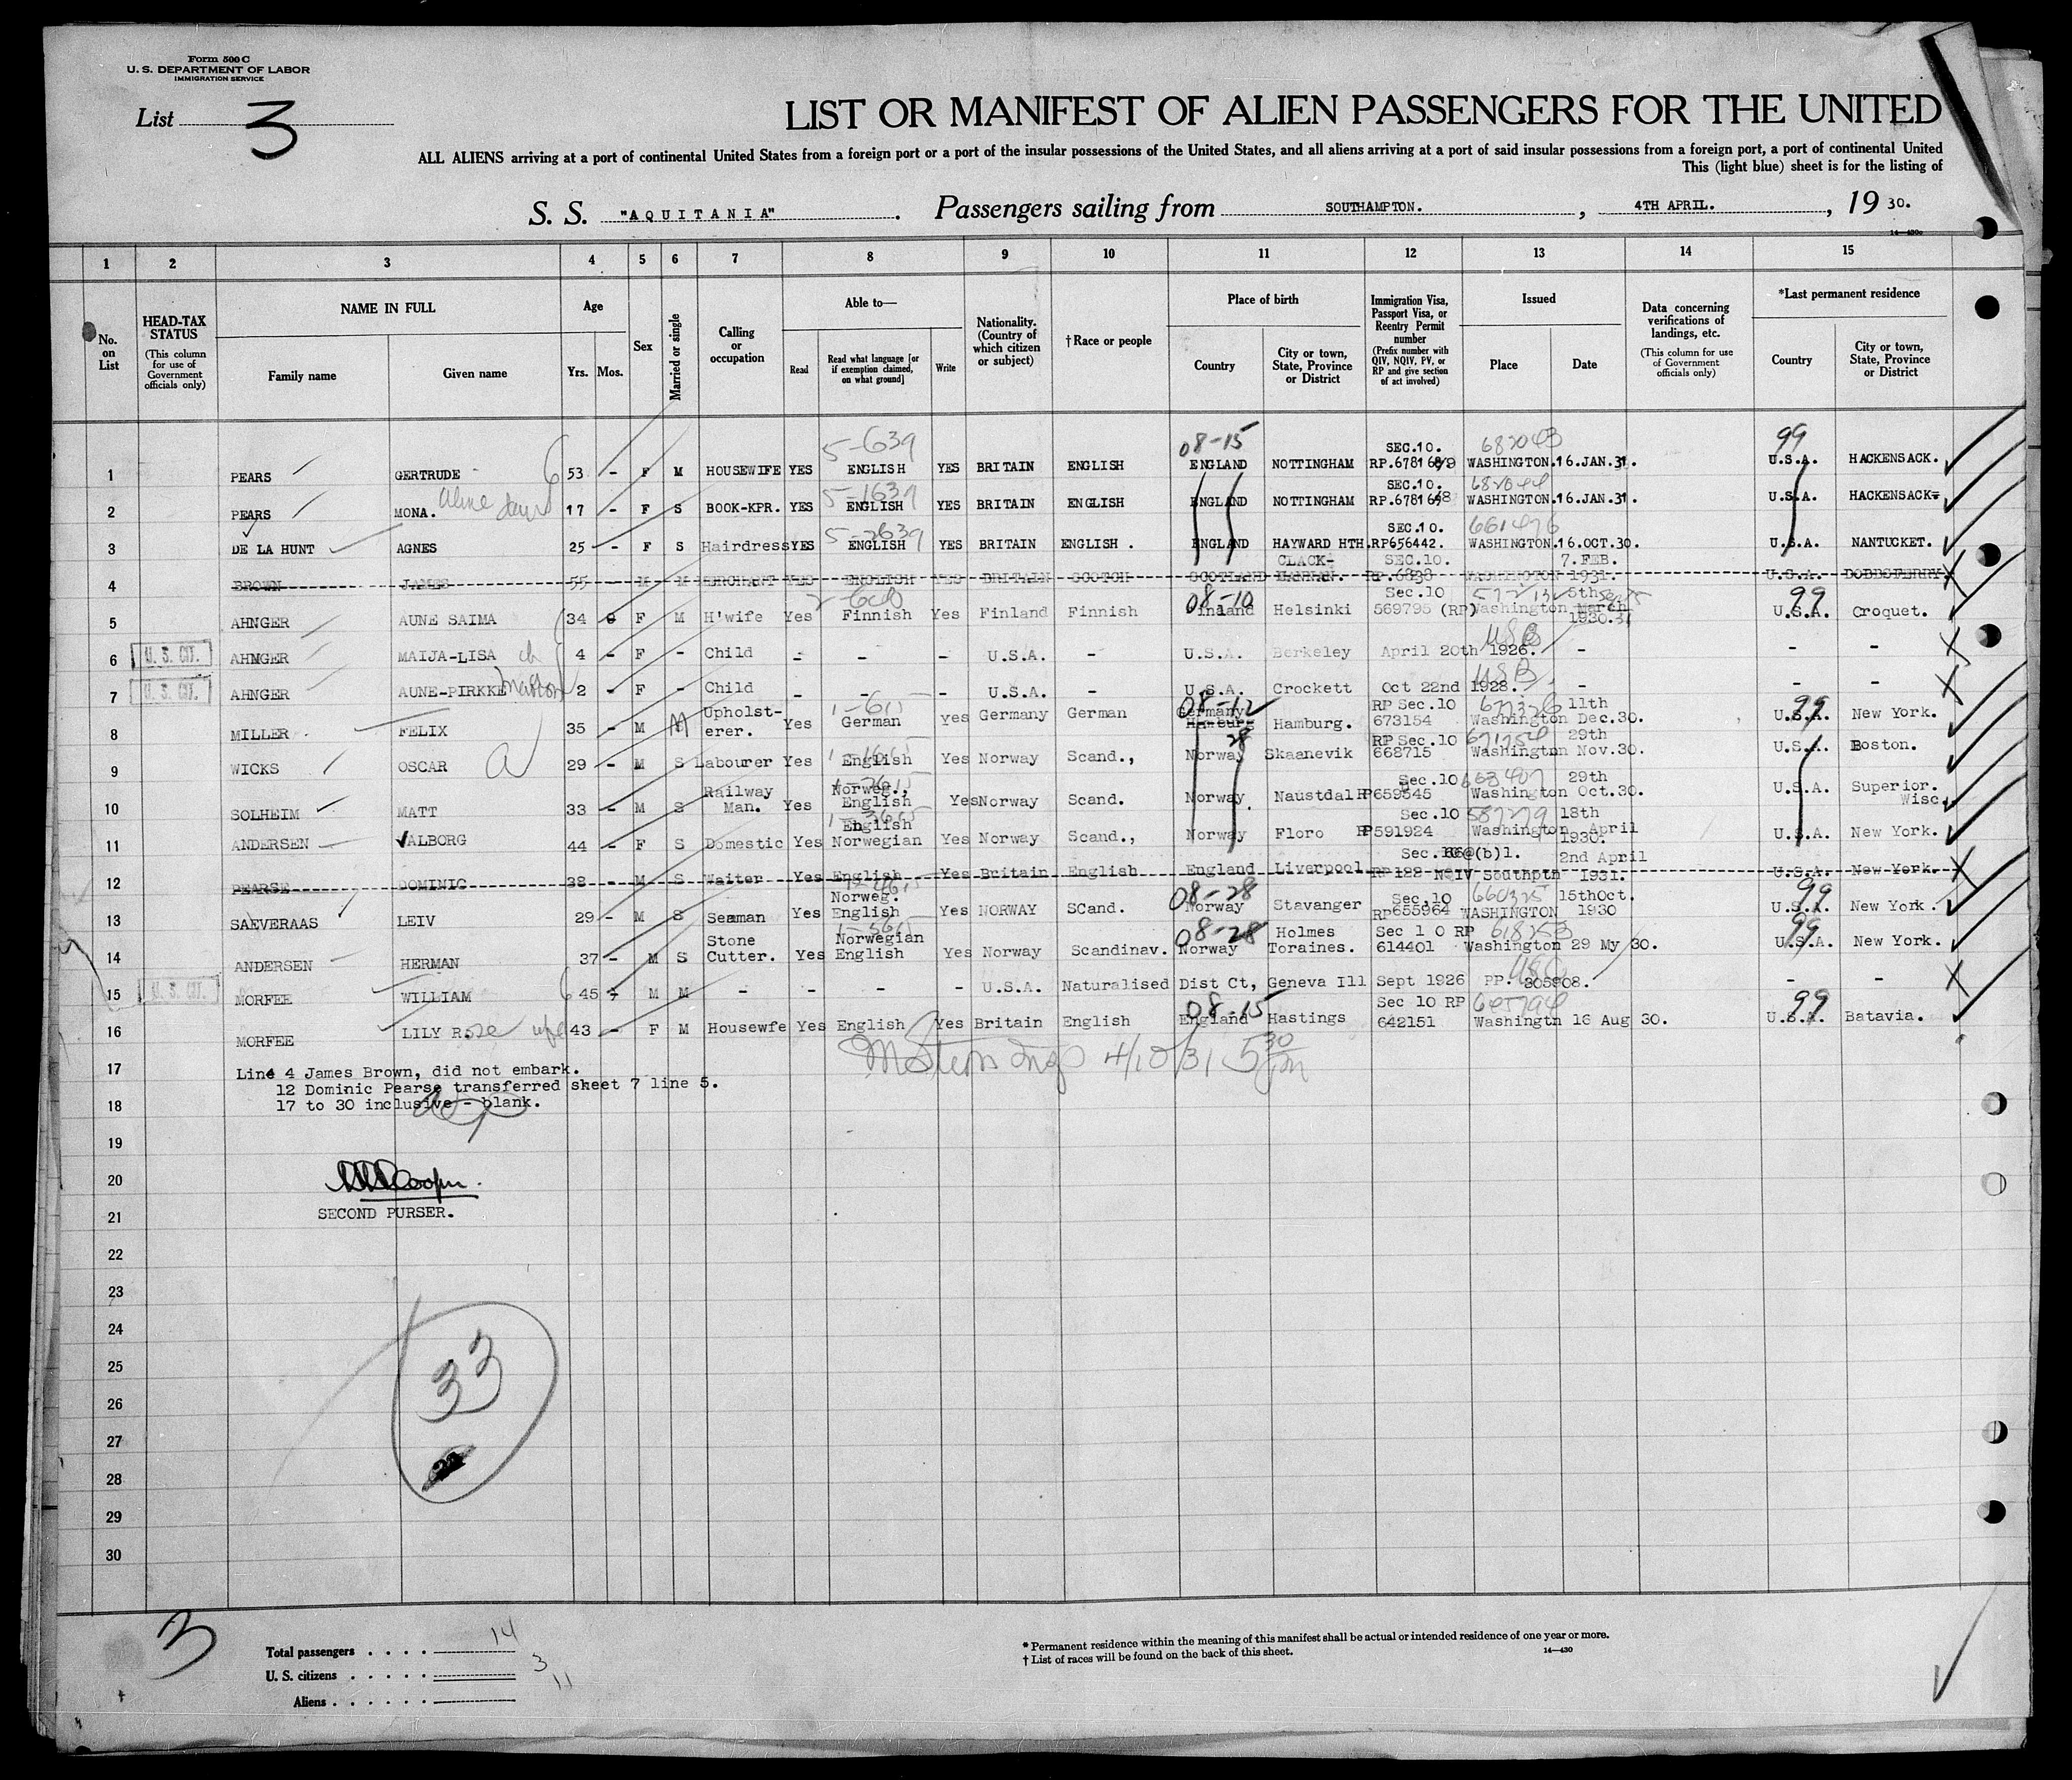 Form 500 C
U. S. DEPARTMENT OF LABOR
IMMIGRATION SERVICE
List 3
LIST OR MANIFEST OF ALIEN PASSENGERS FOR THE UNITED
ALL ALIENS arriving at a port of continental United States from a foreign port or a port of the insular possessions of the United States, and all aliens arriving at a port of said insular possessions from a foreign port, a port of continental United
This (light blue) sheet is for the listing of
S. S. "AQUITANIA" . Passengers sailing from SOUTHAMPTON. , 4TH APRIL. , 19 30.
14—430c
1 2 3 4 5 6 7 8 9 10 11 12 13 14 15
No. on List
HEAD-TAX STATUS (This column for use of Government officials only)
NAME IN FULL
Family name Given name
Age
Yrs. Mos.
Sex
Married or single
Calling or occupation
Able to—
Read Read what language [or if exemption claimed, on what ground] Write
Nationality. (Country of which citizen or subject)
†Race or people
Place of birth
Country City or town, State, Province or District
Immigration Visa, Passport Visa, or Reentry Permit number (Prefix number with QIV, NQIV, PV, or RP and give section of act involved)
Issued
Place Date
Data concerning verifications of landings, etc. (This column for use of Government officials only)
*Last permanent residence
Country City or town, State, Province or District
5-639 08-15 SEC.10. 682043 99
1 PEARS GERTRUDE 53 - F M HOUSEWIFE YES ENGLISH YES BRITAIN ENGLISH ENGLAND NOTTINGHAM WASHINGTON. 16.JAN.31. U.S.A. HACKENSACK.
5-1639 SEC.10. 682044
2 PEARS MONA. 17 - F S BOOK-KPR. YES ENGLISH YES BRITAIN ENGLISH ENGLAND NOTTINGHAM WASHINGTON. 16.JAN.31. U.S.A. HACKENSACK
5-2639 SEC.10. 661476
3 DE LA HUNT AGNES 25 - F S Hairdress YES ENGLISH YES BRITAIN ENGLISH . ENGLAND HAYWARD HTH. RP656442. WASHINGTON. 16.OCT.30. U.S.A. NANTUCKET.
CLACK- SEC.10. 7.FEB.
4 BROWN JAMES 55 - M M MERCHANT YES ENGLISH YES BRITAIN SCOTCH SCOTLAND MANNAN. RP.6838 WASHINGTON 1931. U.S.A. DOBBSFERRY.
08-10 Sec.10 5th 99
5 AHNGER AUNE SAIMA 34 F M H'wife Yes Finnish Yes Finland Finnish Finland Helsinki 569795 (RP) Washington March 1930. U.S.A. Croquet.
USB
6 U. S. CIT. AHNGER MAIJA-LISA ch 4 - F - Child - - - U.S.A. - U.S.A. Berkeley April 20th 1926. - - -
USB
7 U. S. CIT. AHNGER AUNE-PIRKKE 2 - F - Child - - - U.S.A. - U.S.A. Crockett Oct 22nd 1928. - - -
Upholst- 1-615 08-12 Germany RP Sec.10 672326 11th 99
8 MILLER FELIX 35 - M M erer. Yes German Yes Germany German Hamburg Hamburg. 673154 Washington Dec.30. U.S.A. New York.
1-1615 28 RP Sec.10 671754 29th
9 WICKS OSCAR 29 - M S Labourer Yes English Yes Norway Scand., Norway Skaanevik 668715 Washington Nov.30. U.S.A. Boston.
Railway 1-2615 Norweg., Sec.10 663407 29th Superior.
10 SOLHEIM MATT 33 - M S Man. Yes English Yes Norway Scand. Norway. Naustdal RP659545 Washington Oct.30. U.S.A. Wisc.
1-3615 English Sec.10 587279 18th
11 ANDERSEN VALBORG 44 - F S Domestic Yes Norwegian Yes Norway Scand., Norway Floro RP591924 Washington April 1930. U.S.A. New York.
2nd April
12 PEARSE DOMINIC 38 - M S Waiter Yes English Yes Britain English England Liverpool RP 188 NQIV Southptn 1931. U.S.A. New York.
1-4615 Norweg. 08-28 Sec.10 660325 15thOct. 99
13 SAEVERAAS LEIV 29 - M S Seaman Yes English Yes NORWAY SCand. Norway Stavanger RP655964 WASHINGTON 1930 U.S.A. New York.
Stone 1-5615 Norwegian 08-28 Holmes Sec 1 0 RP 618253 99
14 ANDERSEN HERMAN 37 - M S Cutter. Yes English Yes Norway Scandinav. Norway Toraines. 614401 Washington 29 My 30. U.S.A. New York.
15 U. S. CIT. MORFEE WILLIAM 45 M M - - - - U.S.A. Naturalised Dist Ct, Geneva Ill Sept 1926 PP. 305908. - -
08-15 Sec 10 RP 99
16 MORFEE LILY Rose wife 43 - F M Housewfe Yes English Yes Britain English England Hastings 642151 Washingtn 16 Aug 30. U.S.A. Batavia.
4/10/31 5 30 pm
17 Line 4 James Brown, did not embark.
12 Dominic Pearse transferred sheet 7 line 5.
18 17 to 30 inclusive - blank.
19
20 Cooper.
21 SECOND PURSER.
22
23
24
25
26
27
28
29
30
33
3
Total passengers . . . . 14
U. S. citizens . . . . . 3
Aliens . . . . . . 11
* Permanent residence within the meaning of this manifest shall be actual or intended residence of one year or more.
† List of races will be found on the back of this sheet.
14—430